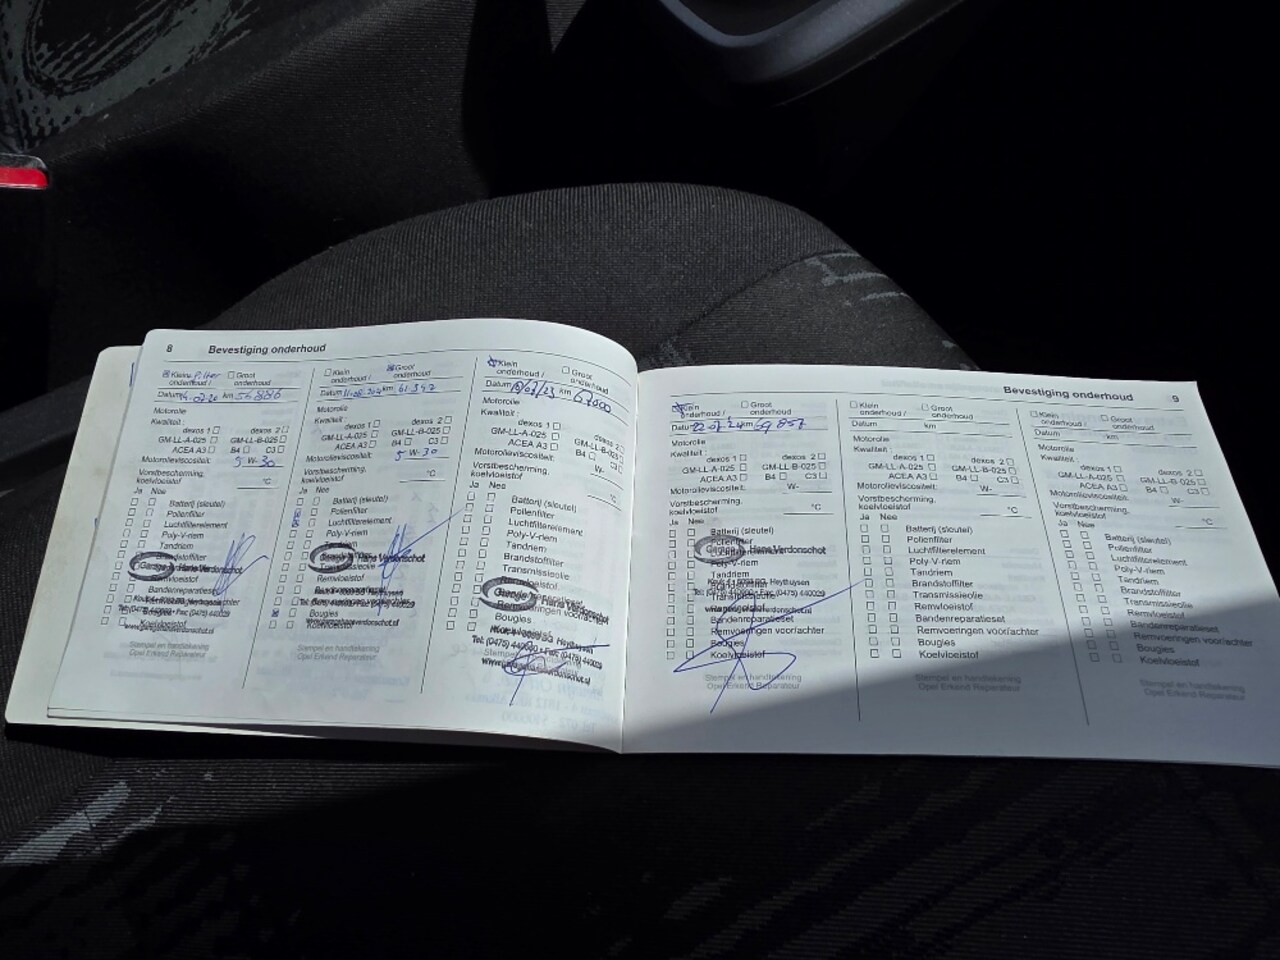 8 Bevestiging onderhoud
Klein onderhoud / Groot onderhoud
Datum km 56886
Motorolie
Kwaliteit :
dexos 1 dexos 2
GM-LL-A-025 GM-LL-B-025
ACEA A3 B4 C3
Motorolieviscositeit: 5 W- 30
Vorstbescherming, koelvloeistof °C
Ja Nee
Batterij (sleutel)
Pollenfilter
Luchtfilterelement
Poly-V-riem
Tandriem
Brandstoffilter
Garage Hans Verdonschot
Remvloeistof
Bandenreparatieset
Tel: (0475) 440060 • Fax: (0475) 440029
Koelvloeistof
www.garagehansverdonschot.nl
Stempel en handtekening
Opel Erkend Reparateur
Klein onderhoud / Groot onderhoud
Datum km 61347
Motorolie
Kwaliteit :
dexos 1 dexos 2
GM-LL-A-025 GM-LL-B-025
ACEA A3 B4 C3
Motorolieviscositeit: 5 W- 30
Vorstbescherming, koelvloeistof °C
Ja Nee
Batterij (sleutel)
Pollenfilter
Luchtfilterelement
Poly-V-riem
Tandriem
Garage Hans Verdonschot
Transmissieolie
Remvloeistof
Bougies
Koelvloeistof
Stempel en handtekening
Opel Erkend Reparateur
Klein onderhoud / Groot onderhoud
Datum km 67000
Motorolie
Kwaliteit :
dexos 1 dexos 2
GM-LL-A-025 GM-LL-B-025
ACEA A3 B4 C3
Motorolieviscositeit: W-
Vorstbescherming, koelvloeistof °C
Ja Nee
Batterij (sleutel)
Pollenfilter
Luchtfilterelement
Poly-V-riem
Tandriem
Brandstoffilter
Transmissieolie
Remvloeistof
Garage Hans Verdonschot
Remvoeringen voor/achter
Bougies
Tel: (0475) 440060 • Fax: (0475) 440029
www.garagehansverdonschot.nl
Bevestiging onderhoud 9
Klein onderhoud / Groot onderhoud
Datum 22.07.24 km 69857
Motorolie
Kwaliteit :
dexos 1 dexos 2
GM-LL-A-025 GM-LL-B-025
ACEA A3 B4 C3
Motorolieviscositeit: W-
Vorstbescherming, koelvloeistof °C
Ja Nee
Batterij (sleutel)
Pollenfilter
Garage Hans Verdonschot
Poly-V-riem
Tandriem
Brandstoffilter
Transmissieolie
Bandenreparatieset
Remvoeringen voor/achter
Bougies
Koelvloeistof
Stempel en handtekening
Opel Erkend Reparateur
Klein onderhoud / Groot onderhoud
Datum km
Motorolie
Kwaliteit :
dexos 1 dexos 2
GM-LL-A-025 GM-LL-B-025
ACEA A3 B4 C3
Motorolieviscositeit: W-
Vorstbescherming, koelvloeistof °C
Ja Nee
Batterij (sleutel)
Pollenfilter
Luchtfilterelement
Poly-V-riem
Tandriem
Brandstoffilter
Transmissieolie
Remvloeistof
Bandenreparatieset
Remvoeringen voor/achter
Bougies
Koelvloeistof
Stempel en handtekening
Opel Erkend Reparateur
Klein onderhoud / Groot onderhoud
Datum km
Motorolie
Kwaliteit :
dexos 1 dexos 2
GM-LL-A-025 GM-LL-B-025
ACEA A3 B4 C3
Motorolieviscositeit: W-
Vorstbescherming, koelvloeistof °C
Ja Nee
Batterij (sleutel)
Pollenfilter
Luchtfilterelement
Poly-V-riem
Tandriem
Brandstoffilter
Transmissieolie
Remvloeistof
Bandenreparatieset
Remvoeringen voor/achter
Bougies
Koelvloeistof
Stempel en handtekening
Opel Erkend Reparateur